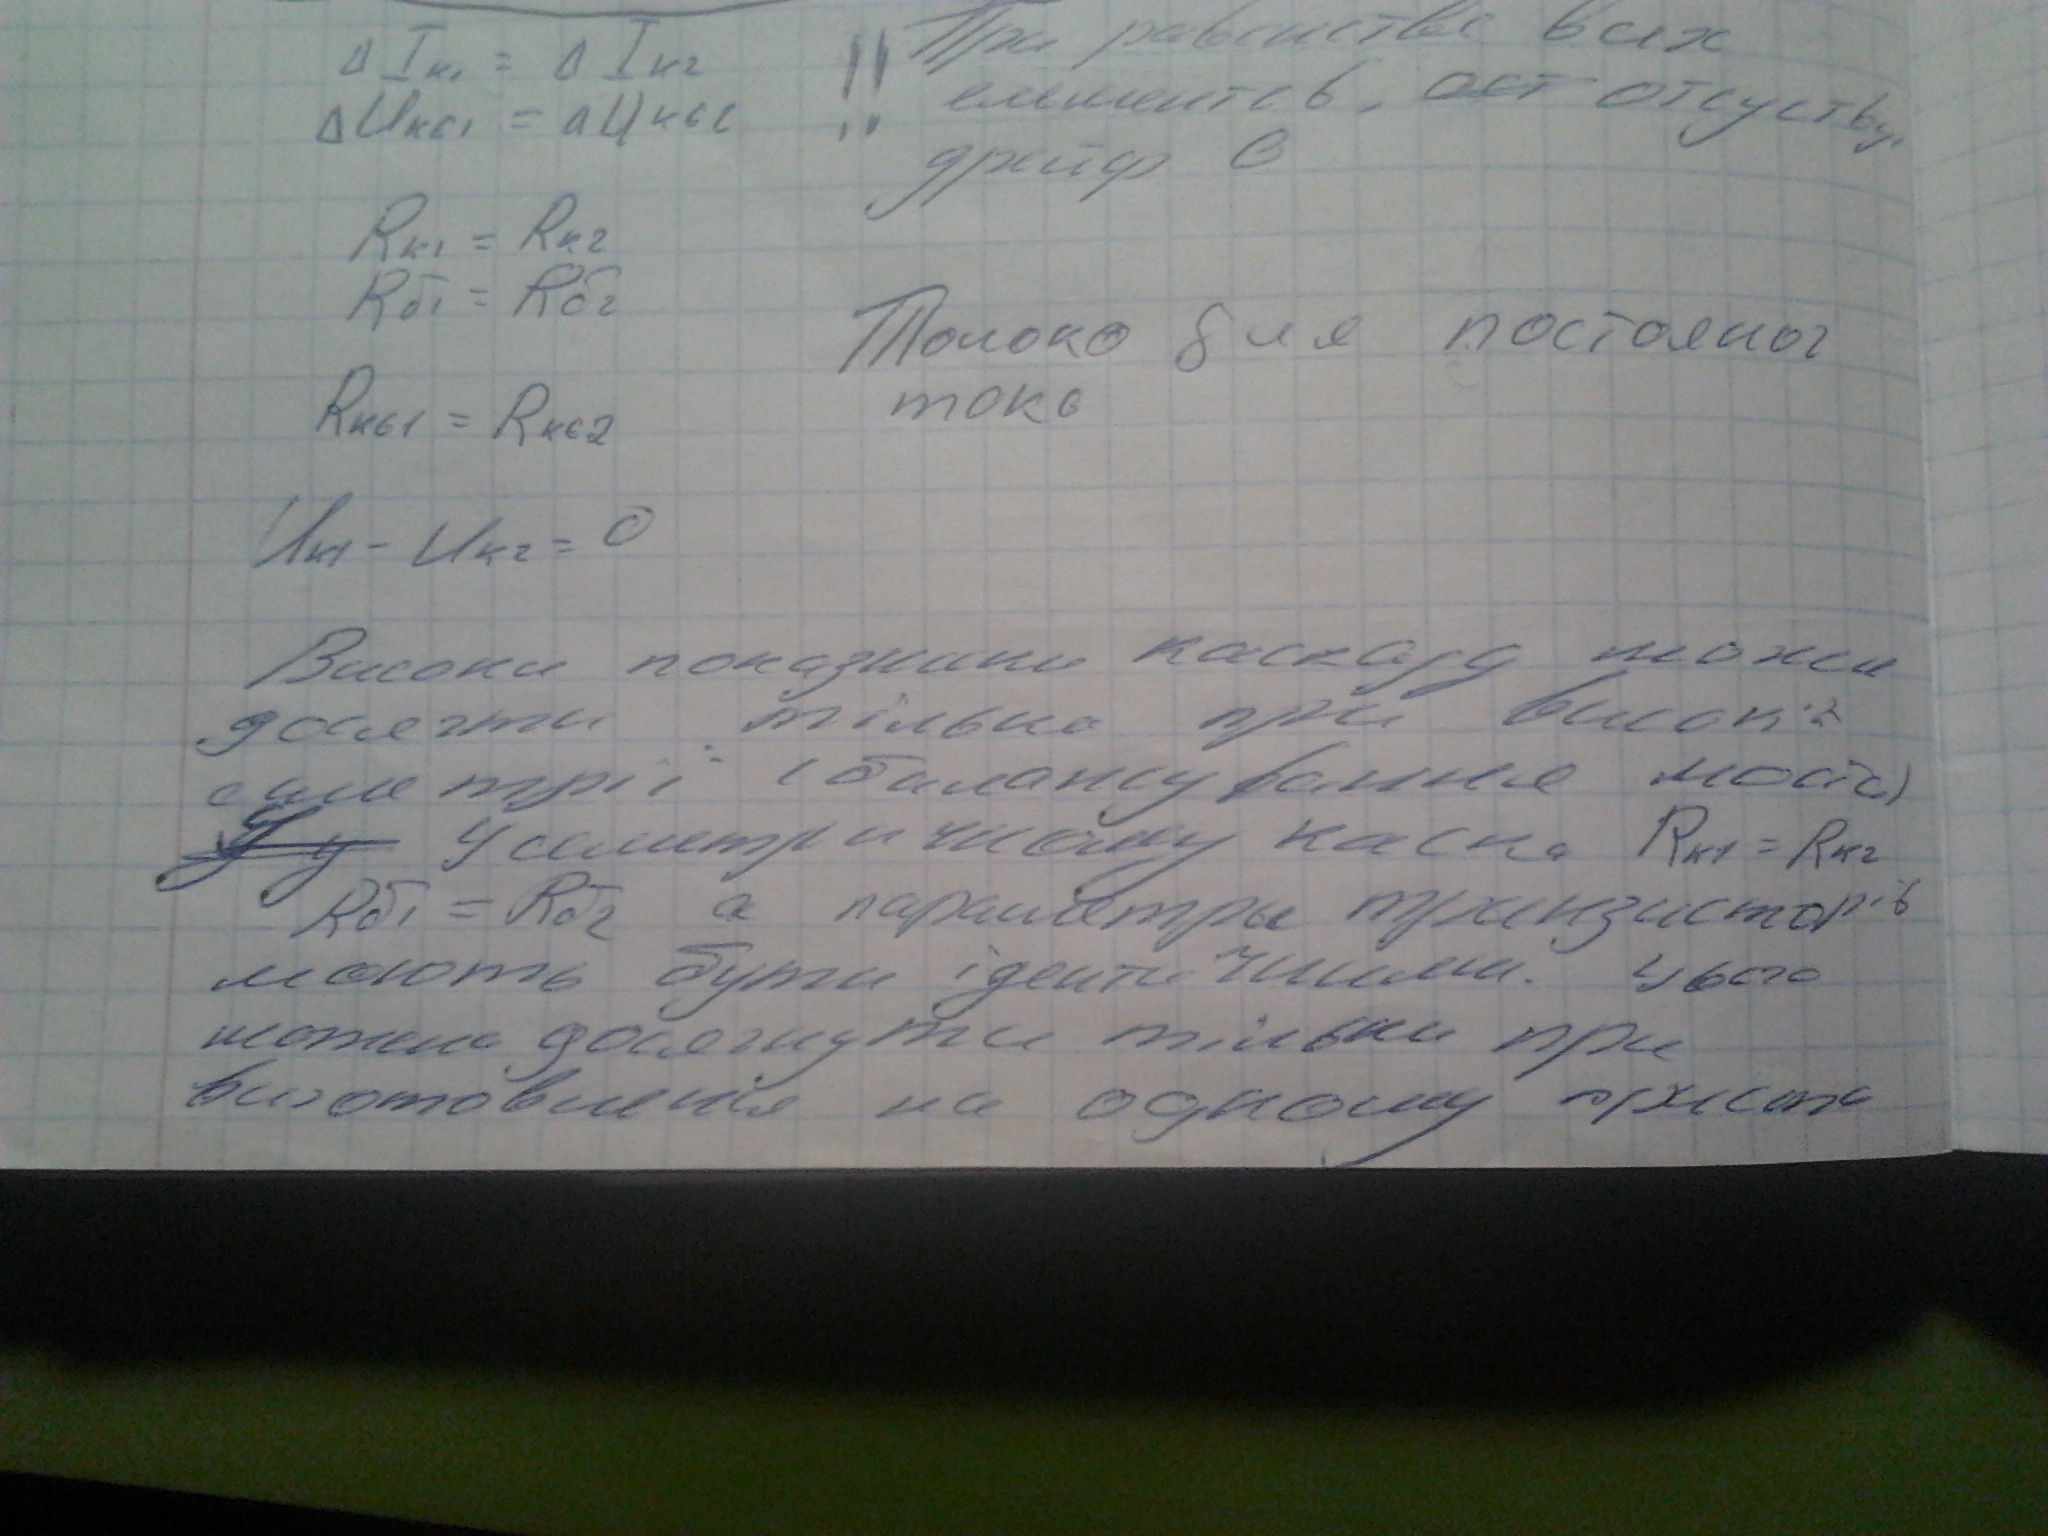 ΔIк1 = ΔIк2
ΔUкб1 = ΔUкб2
!! При равенстве всех
елементов, отсуству.
дрейф 0
Rк1 = Rк2
Rб1 = Rб2
Rкб1 = Rкб2
Только для постояног
тока
Uк1 - Uк2 = 0
Високи показники каскаду може
досягти тільки при високій
симетрії (балансування моста)
У симетричному каск. Rк1 = Rк2
Rб1 = Rб2 а параметры транзисторів
мають бути ідентичними. Цього
можна досягнути тільки при
виготовлення на одному